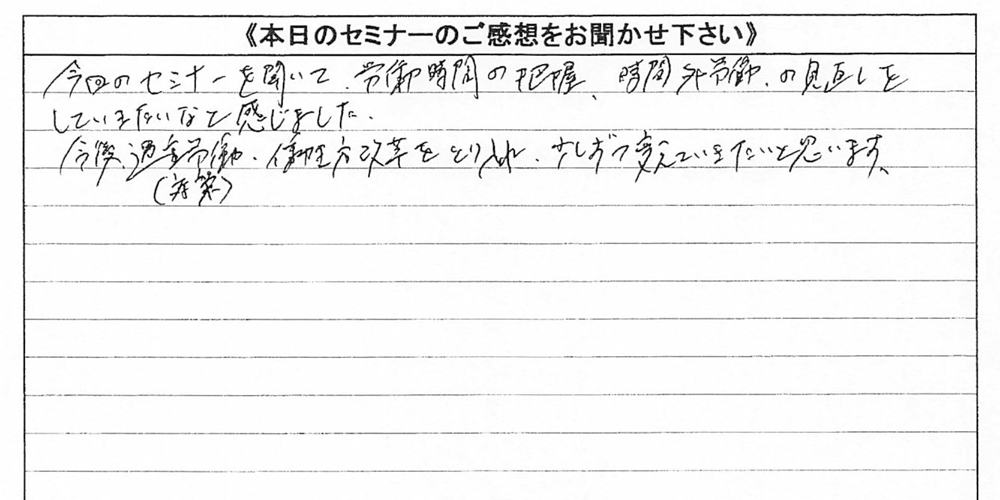 《本日のセミナーのご感想をお聞かせ下さい》
今回のセミナーを聞いて、労働時間の把握、時間外労働、の見直しを
していきたいなと感じました。
今後、過重労働、働き方改革をとり入れ、少しずつ変えていきたいと思います。
(対策)